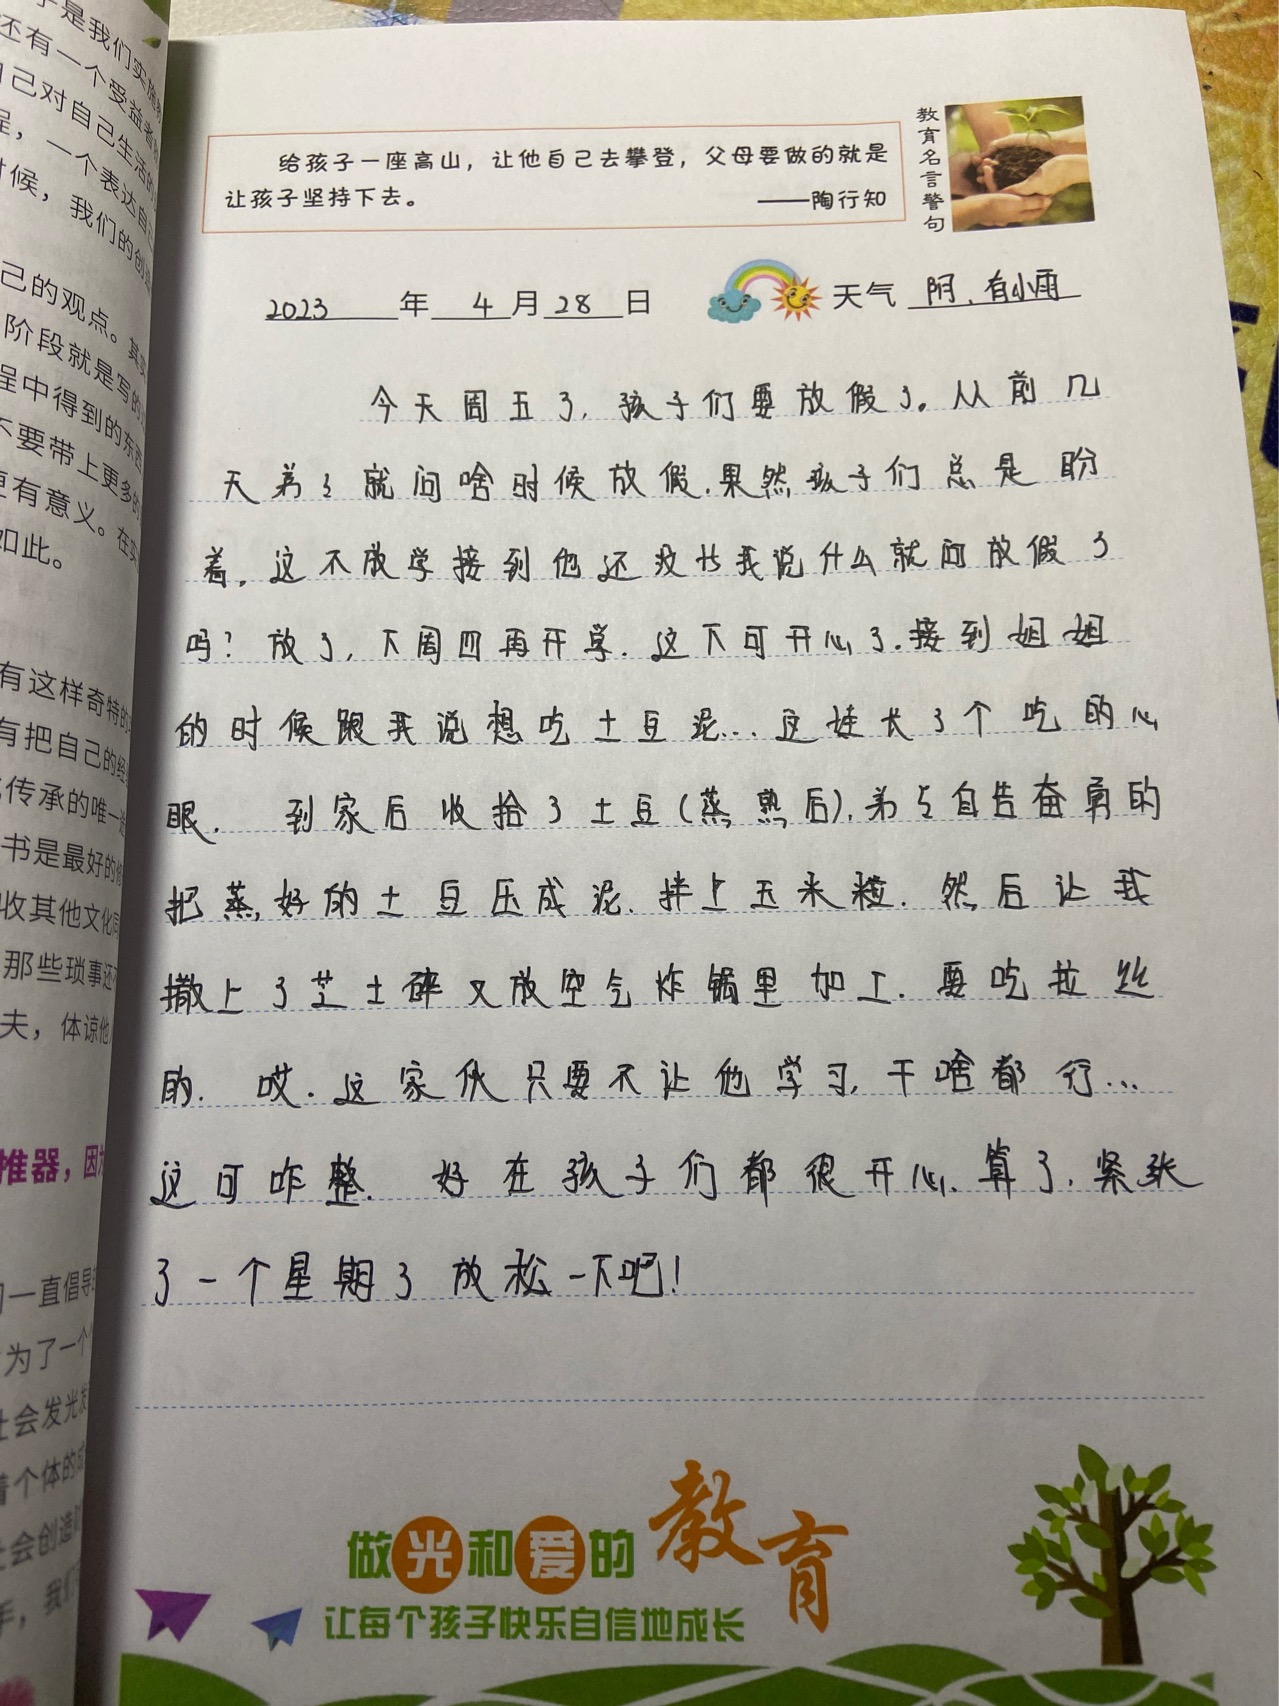 子是我们实施教
还有一个受益者
自己对自己生活的
程，一个表达自己
时候，我们的创造
己的观点。其实
阶段就是写的
程中得到的东西
不要带上更多的
更有意义。在实
如此。
有这样奇特的
有把自己的经
传承的唯一途
书是最好的
收其他文化同
那些琐事还不
夫，体谅他
推器，因为
一直倡导
为了一个
社会发光发
着个体的成
社会创造
手，我们
给孩子一座高山，让他自己去攀登，父母要做的就是
让孩子坚持下去。 ——陶行知
教育名言警句
2023 年 4 月 28 日 天气 阴、有小雨
今天周五了，孩子们要放假了。从前几
天弟弟就问啥时候放假，果然孩子们总是盼
着。这不放学接到他还没与我说什么就问放假了
吗？放了，下周四再开学。这下可开心了。接到姐姐
的时候跟我说想吃土豆泥…这娃长了个吃的心
眼。 到家后收拾了土豆(蒸熟后)，弟弟自告奋勇的
把蒸好的土豆压成泥，拌上玉米粒。然后让我
撒上了芝士碎又放空气炸锅里加工。要吃拉丝
的。 哎。这家伙只要不让他学习，干啥都行…
这可咋整。 好在孩子们都很开心，算了，紧张
了一个星期了放松一下吧！
做光和爱的教育
让每个孩子快乐自信地成长